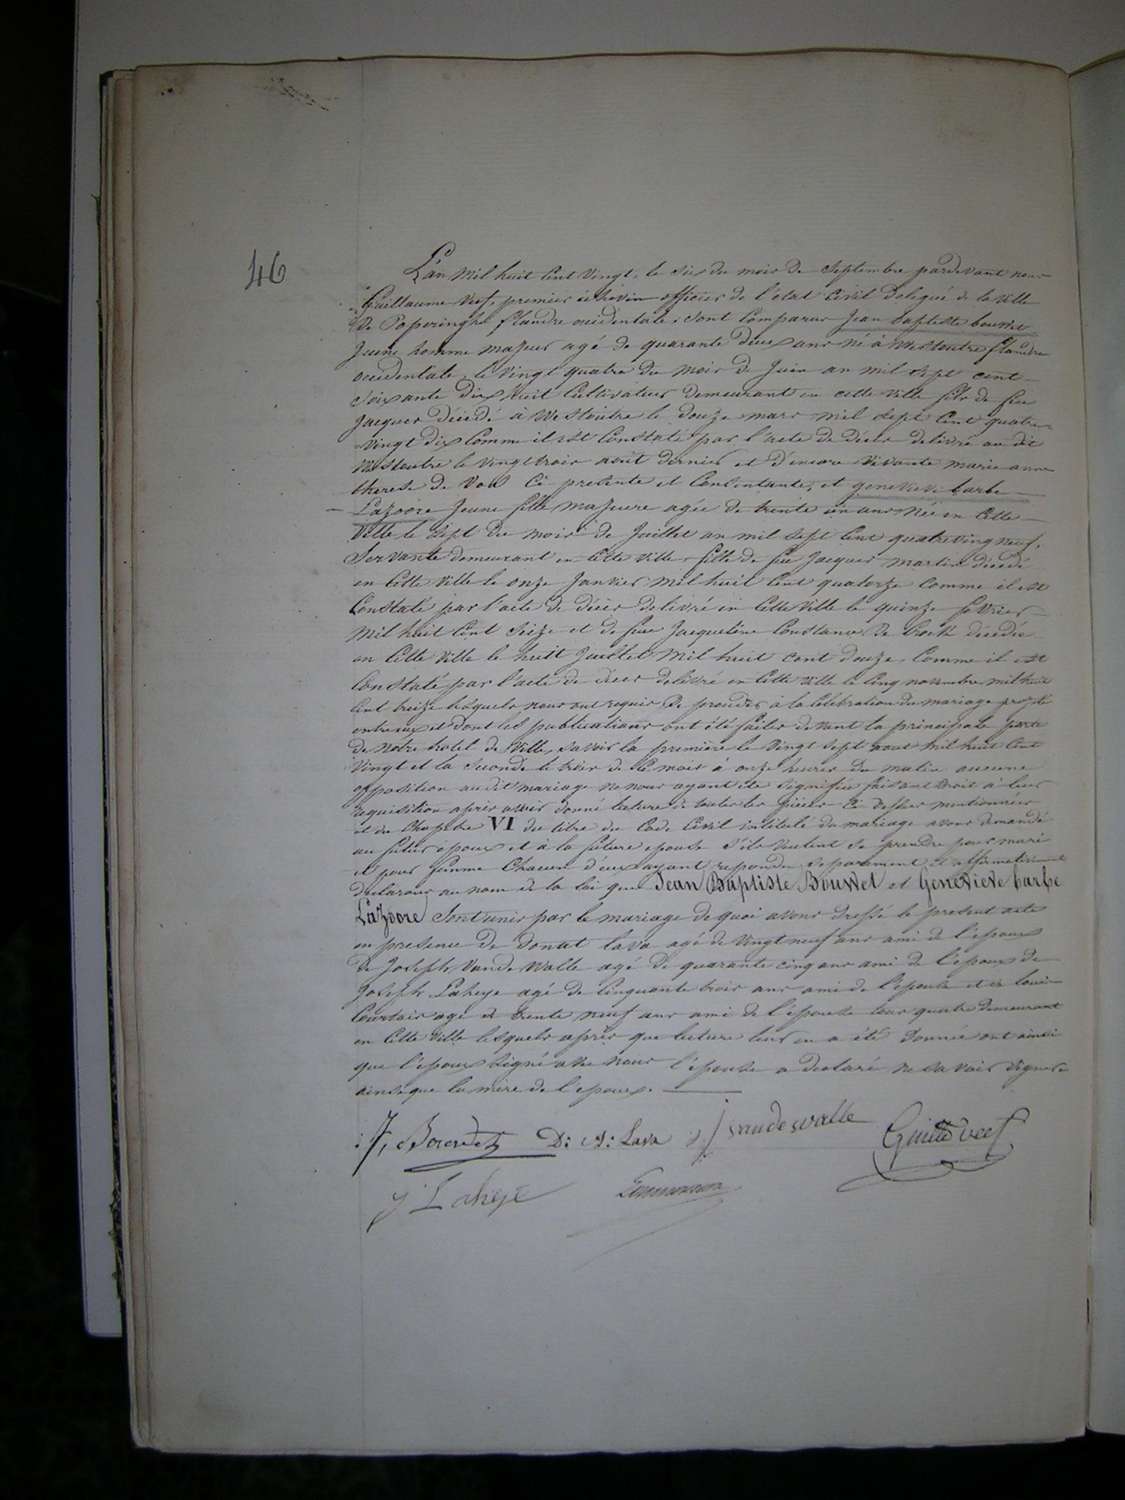 46
L'an Mil huit Cent Vingt, le Six du mois de Septembre pardevant nous
Guillaume Veef, premier échevin officier de l'état Civil Delegué de la Ville
de Poperinghe flandre occidentale; sont Comparus Jean baptiste bouvet
Jeune homme majeur agé de quarante deux ans né à Westoutre flandre
occidentale, le Vingt quatre du mois de Juin an mil Sept cent
Soixante dix huit Cultivateur demeurant en cette Ville fils de feu
Jacques Décédé à Westoutre le douze mars mil Sept Cent quatre
Vingt dix Comme il est Constaté par l'acte de Décès delivré au dit
Westoutre le Vingt trois août dernier et d'encore Vivante marie anne
therese de Vos Ci presente et Consentante; et genevieve barbe
Lazoore Jeune fille majeure agée de trente un ans Née en Cette
Ville le Sept du mois de Juillet an mil Sept Cent quatreving neuf,
Servante demeurant en Cette Ville, fille de feu Jacques martin décédé
en Cette Ville le onze Janvier Mil huit Cent quatorze Comme il est
Constaté par l'acte de décès delivré en Cette Ville le quinze fevrier
Mil huit Cent Seize et de feue Jacqueline Constance De décédée
en Cette Ville le huit Juillet Mil huit cent douze, Comme il est
Constaté par l'acte de décès delivré en Cette Ville le Cinq novembre mil huit
Cent treize lesquels nous ont requis de proceder a la Célébration du mariage projeté
entre eux et dont les publications ont été faites devant la principale porte
de notre hotel de Ville, Savoir la première le Vingt Sept aout mil huit Cent
Vingt et la Seconde le trois de Ce mois à onze heures du matin aucune
opposition au dit mariage ne nous ayant été signifiée faisant droit à leur
requisition après avoir donné lecture de toutes les pièces Ci Dessus mentionnées
et du Chapitre VI du titre du Code Civil intitulé du mariage avons demandé
au futur epoux et à la future epouse s'ils veulent Se prendre pour mari
et pour femme Chacun d'eux ayant repondu Separement et affirmativement
declarons au nom de la loi que Jean Baptiste Bouvet et Genevieve barbe
Lazoore Sont unis par le mariage de quoi avons dressé le present acte
en presence de donat Lava agé de Vingt neuf ans ami de l'epoux
de Joseph Vande Walle agé de quarante cinq ans ami de l'epoux de
Joseph Laheye agé de Cinquante trois ans ami de l'epouse et de louis
agé de trente neuf ans ami de l'epouse tous quatre demeurant
en Cette Ville lesquels après que lecture leur en a été donnée ont ainsi
que l'epoux Signé avec nous l'épouse a declaré ne Savoir Signer
ainsi que la mere de l'epoux.
D: A: Lava J vandewalle Guill Veef
J Laheye